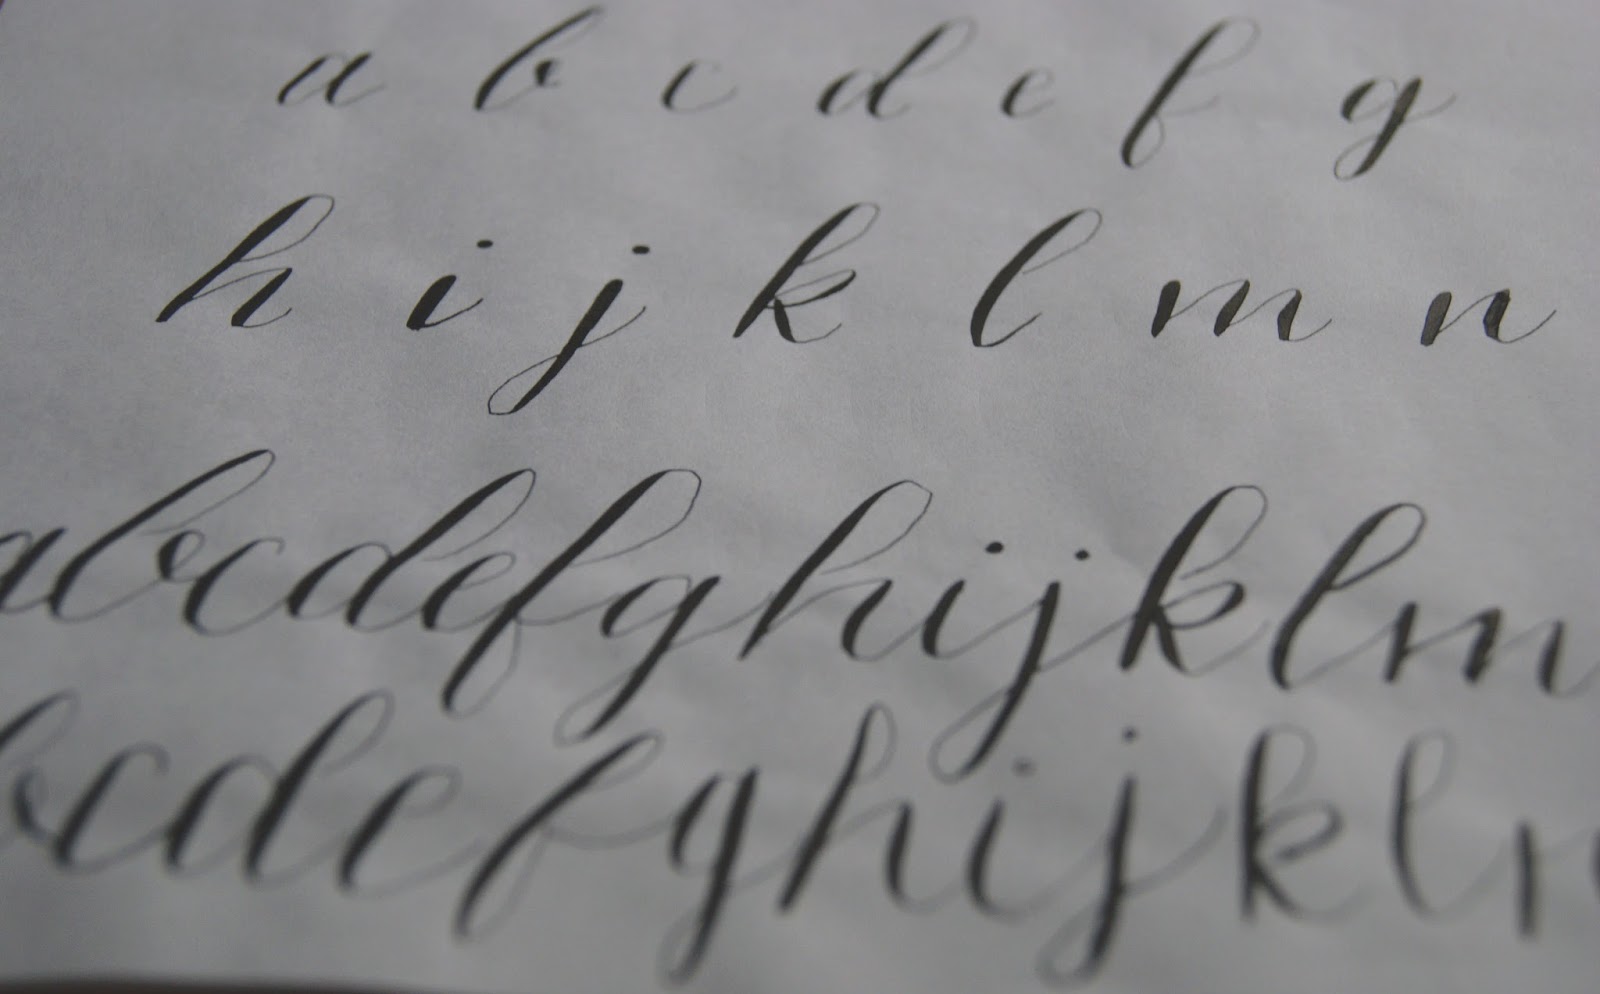 a b c d e f g
h i j k l m n
abcdefghijklm
bcdefghijkl